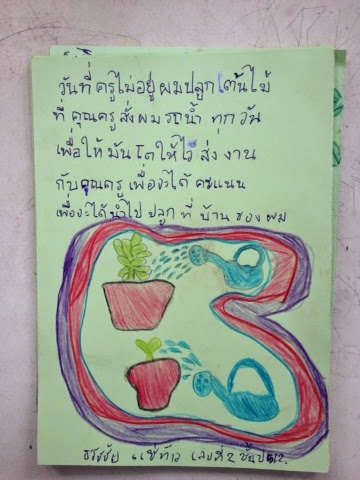 วันที่ครูไม่อยู่ ผมปลูกต้นไม้
ที่ คุณครูสั่งผมรดน้ำ ทุกวัน
เพื่อให้ มันโตให้ไว ส่งงาน
กับคุณครู เพื่อจะได้ คะแนน
เพื่อจะได้นำไป ปลูก ที่ บ้าน ของ ผม
ธรรชัย แซ่ท้าว เลขที่ 2 ชั้น